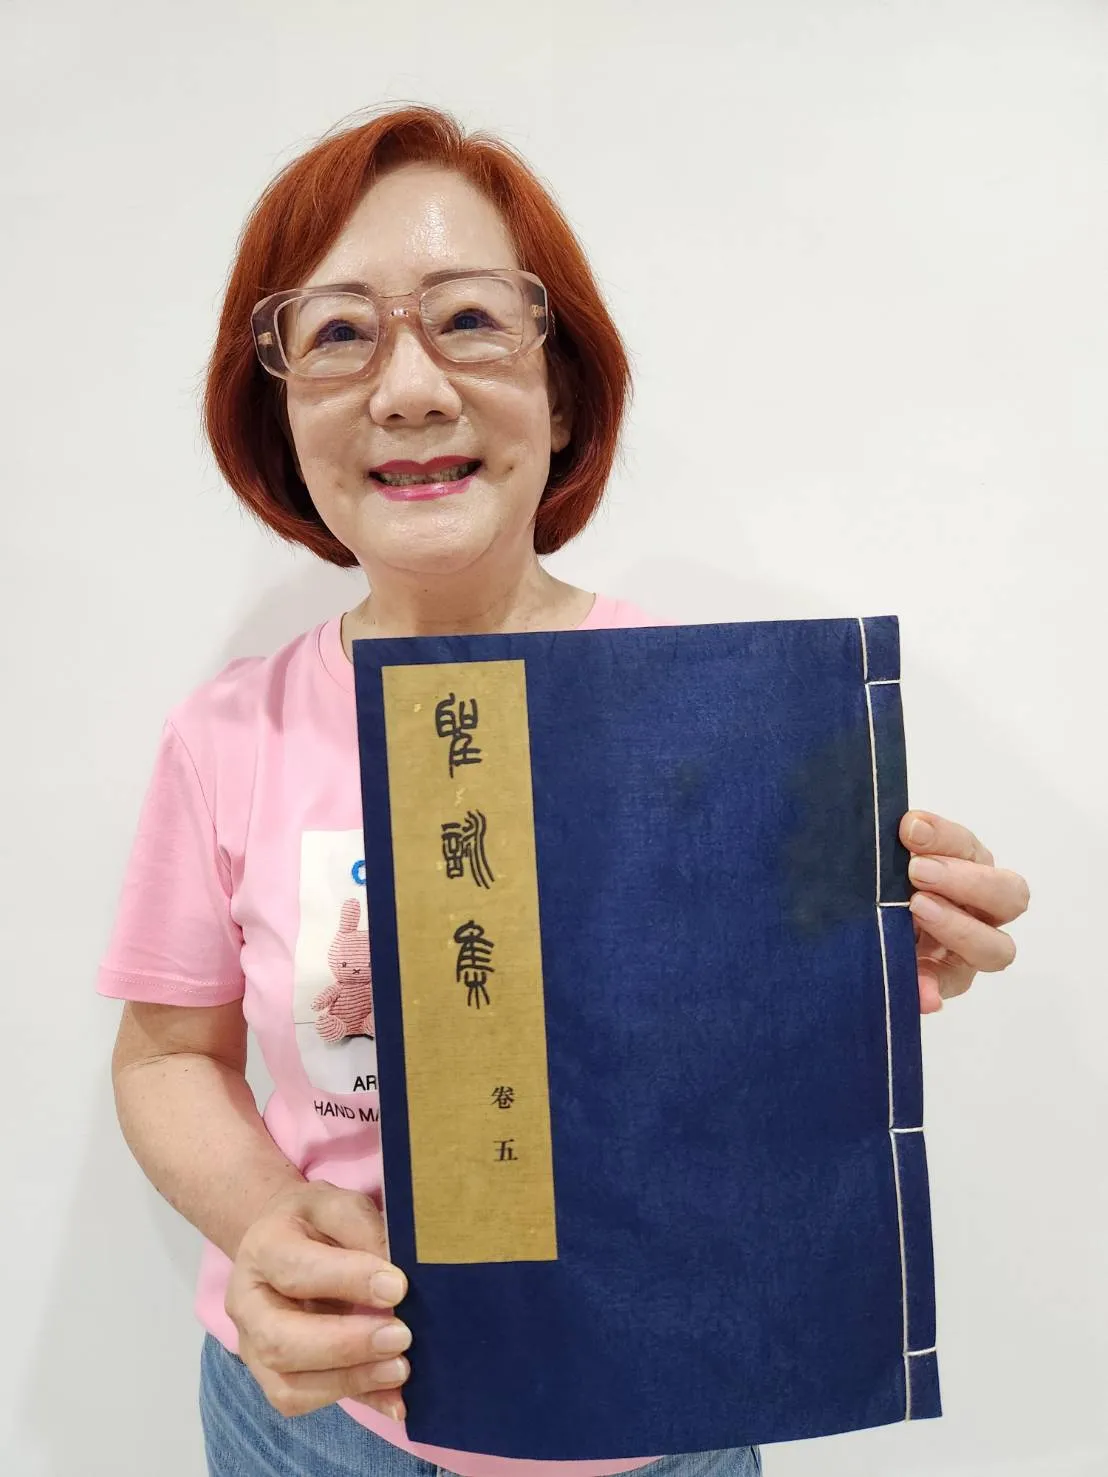 聖訓集
卷五
AR
HAND MA